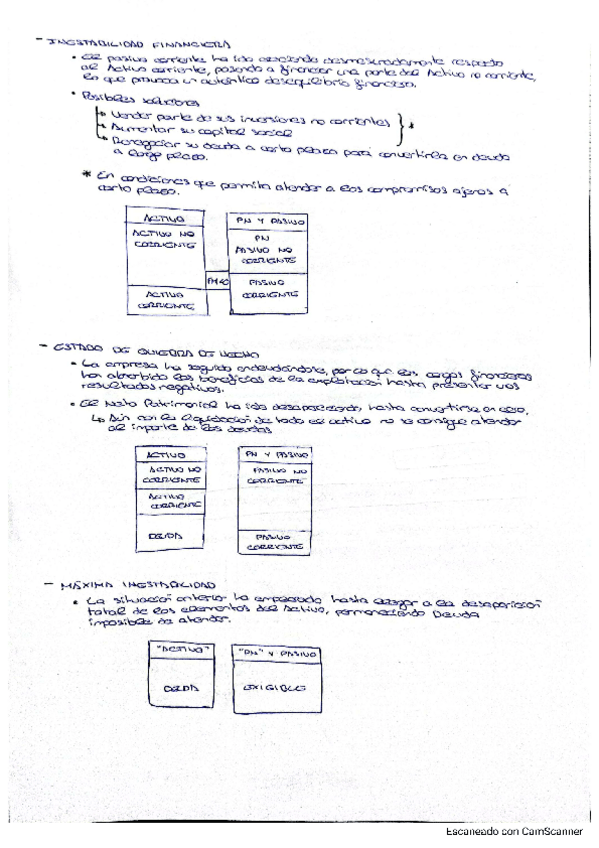 - INESTABILIDAD FINANCIERA
• El pasivo corriente ha ido creciendo desmesuradamente respecto
al Activo corriente, pasando a financiar una parte del Activo no corriente,
lo que provoca un auténtico desequilibrio financiero.
• Posibles soluciones
↳ Vender parte de sus inversiones no corrientes
↳ Aumentar su capital social } *
↳ Renegociar su deuda a corto plazo para convertirla en deuda
a largo plazo.
* En condiciones que permita atender a los compromisos ajenos a
corto plazo.
ACTIVO PN Y PASIVO
ACTIVO NO PN
CORRIENTE PASIVO NO
CORRIENTE
FM<0 PASIVO
ACTIVO CORRIENTE
CORRIENTE
- ESTADO DE QUIEBRA DE HECHO
• La empresa ha seguido endeudándose, por lo que los cargos financieros
han absorbido los beneficios de la explotación hasta presentar unos
resultados negativos.
• El Neto Patrimonial ha ido desapareciendo, hasta convertirse en cero.
↳ Aún con la liquidación de todo el activo no se consigue atender
al importe de las deudas
ACTIVO PN Y PASIVO
ACTIVO NO PASIVO NO
CORRIENTE CORRIENTE
ACTIVO
CORRIENTE
DEUDA PASIVO
CORRIENTE
- MÁXIMA INESTABILIDAD
• La situación anterior ha empeorado hasta llegar a la desaparición
total de los elementos del Activo, permaneciendo Deuda
imposible de atender.
"ACTIVO" "PN" Y PASIVO
DEUDA EXIGIBLE
Escaneado con CamScanner